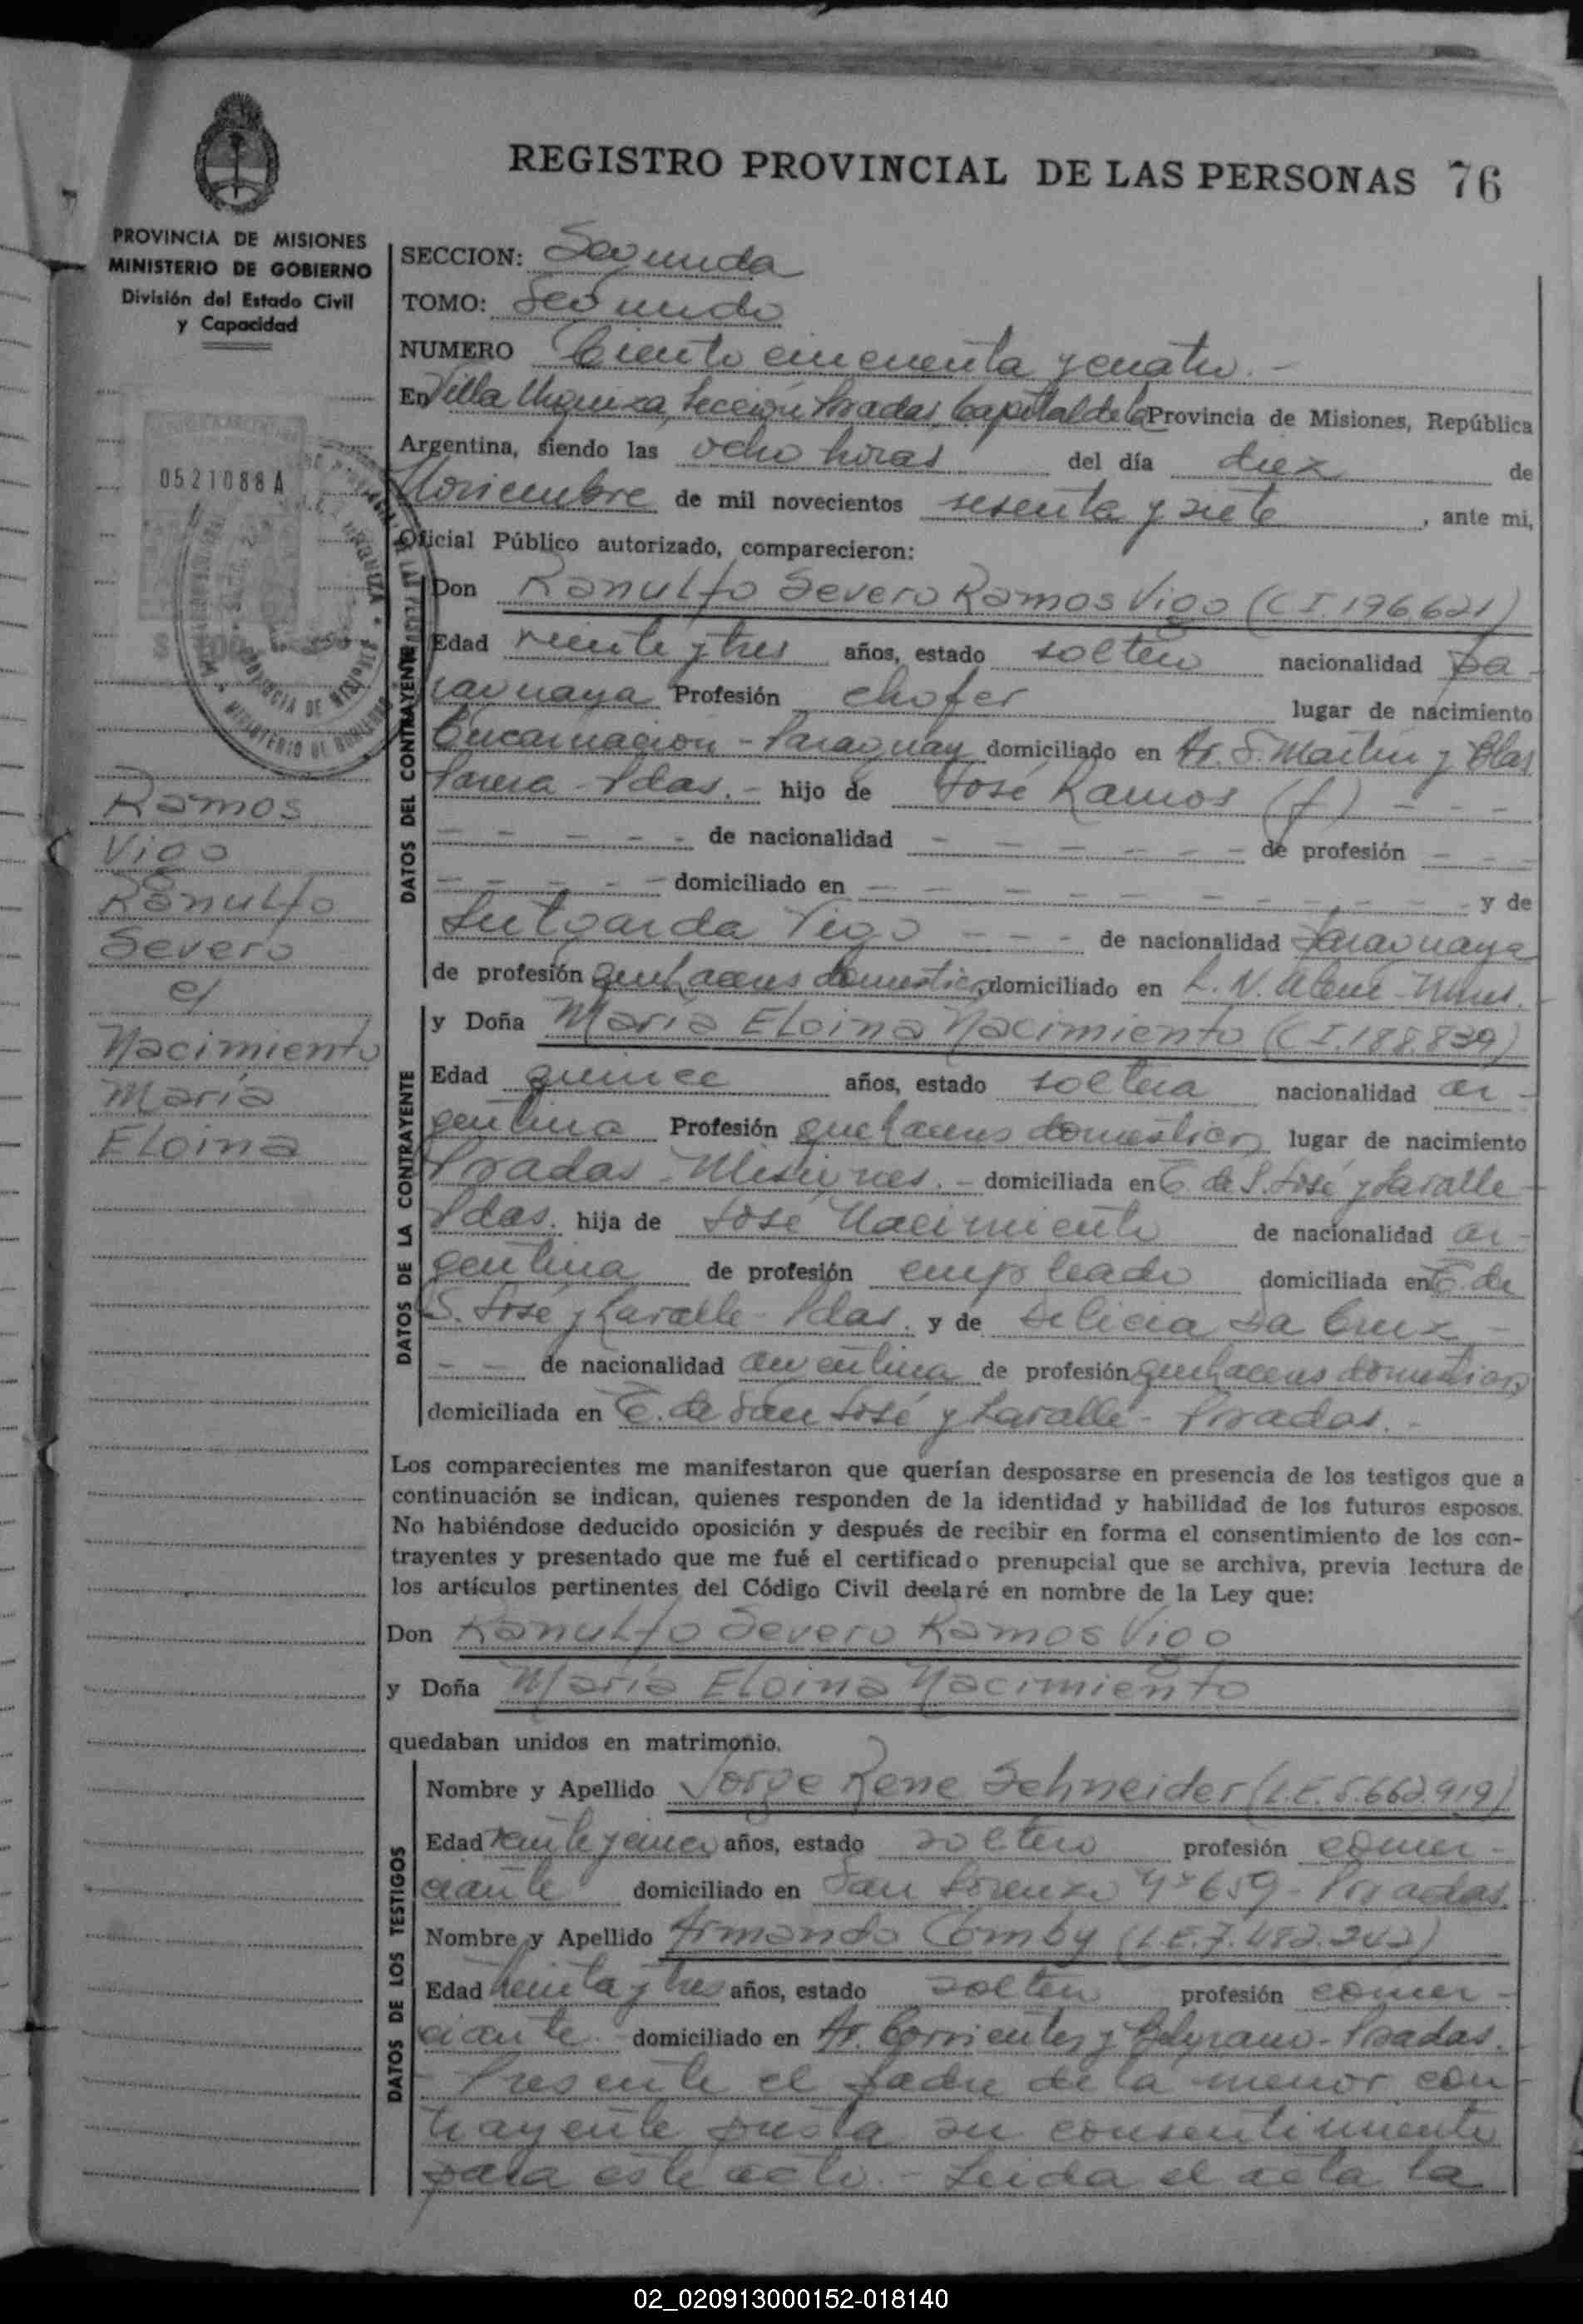 REGISTRO PROVINCIAL DE LAS PERSONAS 76
PROVINCIA DE MISIONES
MINISTERIO DE GOBIERNO
División del Estado Civil
y Capacidad
0521088A
Ramos
Vigo
Ranulfo
Severo
c/
Nacimiento
María
Eloina
SECCION: Segunda
TOMO: Segundo
NUMERO Ciento cincuenta y cuatro.-
En Villa Urquiza, Sección Posadas, Capital de la Provincia de Misiones, República
Argentina, siendo las ocho horas del día diez de
Noviembre de mil novecientos sesenta y siete, ante mi,
Oficial Público autorizado, comparecieron:
DATOS DEL CONTRAYENTE
Don Ranulfo Severo Ramos Vigo (C I. 196.621)
Edad veinte y tres años, estado soltero nacionalidad pa-
raguaya Profesión chofer lugar de nacimiento
Encarnación - Paraguay domiciliado en Av. S. Martín y Blas
Parera - Pdas. - hijo de José Ramos (f) - - -
- - - - - - de nacionalidad - - - - - - de profesión - - -
- - - - - domiciliado en - - - - - - - - y de
Lutgarda Vigo - - - de nacionalidad Paraguaya
de profesión quehaceres domesticos domiciliado en L. N. Alem - Mnes.
DATOS DE LA CONTRAYENTE
y Doña María Eloina Nacimiento (C I. 188.839)
Edad quince años, estado soltera nacionalidad ar-
gentina Profesión quehaceres domesticos lugar de nacimiento
Posadas - Misiones. - domiciliada en C. de S. José y Lavalle -
Pdas. hija de José Nacimiento de nacionalidad ar-
gentina de profesión empleado domiciliada en C. de
S. José y Lavalle - Pdas. y de Delicia Da Cruz -
- - de nacionalidad argentina de profesión quehaceres domesticos
domiciliada en C. de San José y Lavalle - Posadas. -
Los comparecientes me manifestaron que querían desposarse en presencia de los testigos que a
continuación se indican, quienes responden de la identidad y habilidad de los futuros esposos.
No habiéndose deducido oposición y después de recibir en forma el consentimiento de los con-
trayentes y presentado que me fué el certificado prenupcial que se archiva, previa lectura de
los artículos pertinentes del Código Civil declaré en nombre de la Ley que:
Don Ranulfo Severo Ramos Vigo
y Doña María Eloina Nacimiento
quedaban unidos en matrimonio.
DATOS DE LOS TESTIGOS
Nombre y Apellido Jorge Rene Schneider (L.E. 5.662.919)
Edad veinte y cinco años, estado soltero profesión comer-
ciante domiciliado en San Lorenzo Nº 659 - Posadas.
Nombre y Apellido Armando Comby (L.E. 7.482.242)
Edad treinta y tres años, estado soltero profesión comer-
ciante. - domiciliado en Av. Corrientes y Belgrano - Posadas.
- Presente el padre de la menor con-
trayente presta su consentimiento
para este acto. - Leida el acta la
02_020913000152-018140